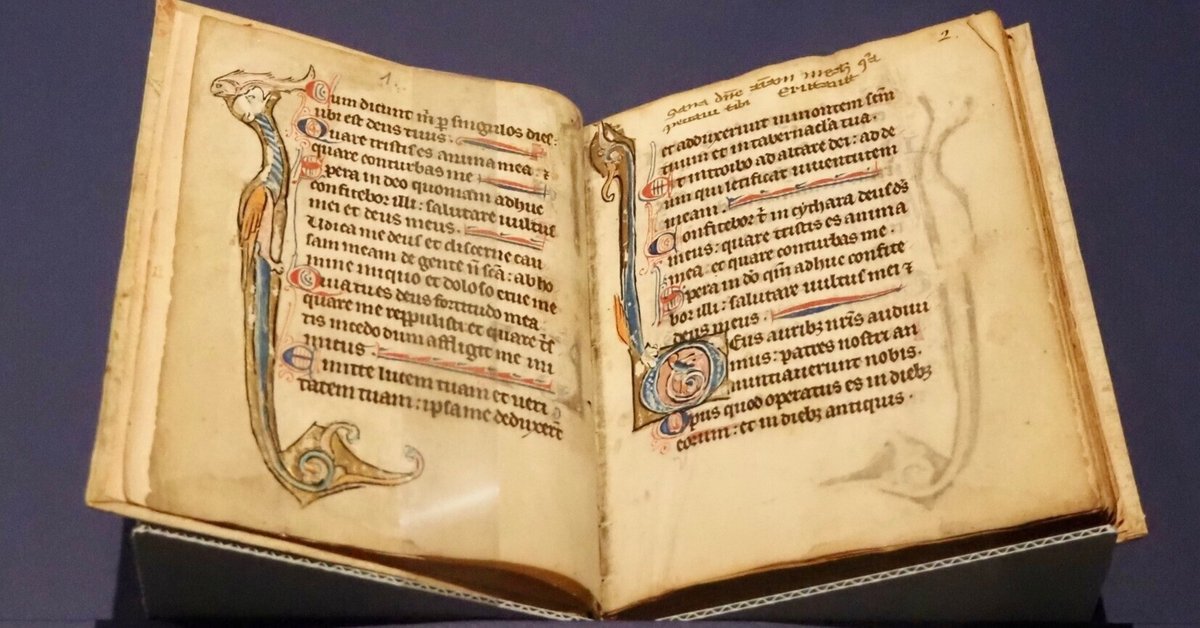 1.
Cum dicunt m̃ p̱ singulos dies:
ubi est deus tuus.
Quare tristis es anima mea: ⁊
quare conturbas me
Spera in deo quoniam adhuc
confitebor illi: salutare uultus
mei et deus meus.
Iudica me deus et discerne cau
sam meam de gente ñ scã: ab ho
mine iniquo et doloso erue me
Quia tu es deus fortitudo mea
quare me reppulisti et quare t̃s
tis incedo dum affligit me ini
micus
Emitte lucem tuam et ueri
tatem tuam: ipsa me deduxer̃t
2.
tibi
et adduxerunt in montem scm̃
tuum et in tabernac̃la tua.
Et introibo ad altare dei: ad de
um qui letificat iuuentutem
meam.
Confitebor t̃ in cythara deus ds̃
meus: quare tristis es anima
mea. et quare conturbas me.
Spera in dõ qm̃ adhuc confite
bor illi: salutare uultus mei ⁊
deus meus.
Deus auribꝫ nr̃is audiui
mus: patres nostri an
nuntiauerunt nobis.
Opus quod operatus es in diebꝫ
eorum: et in diebꝫ antiquis.